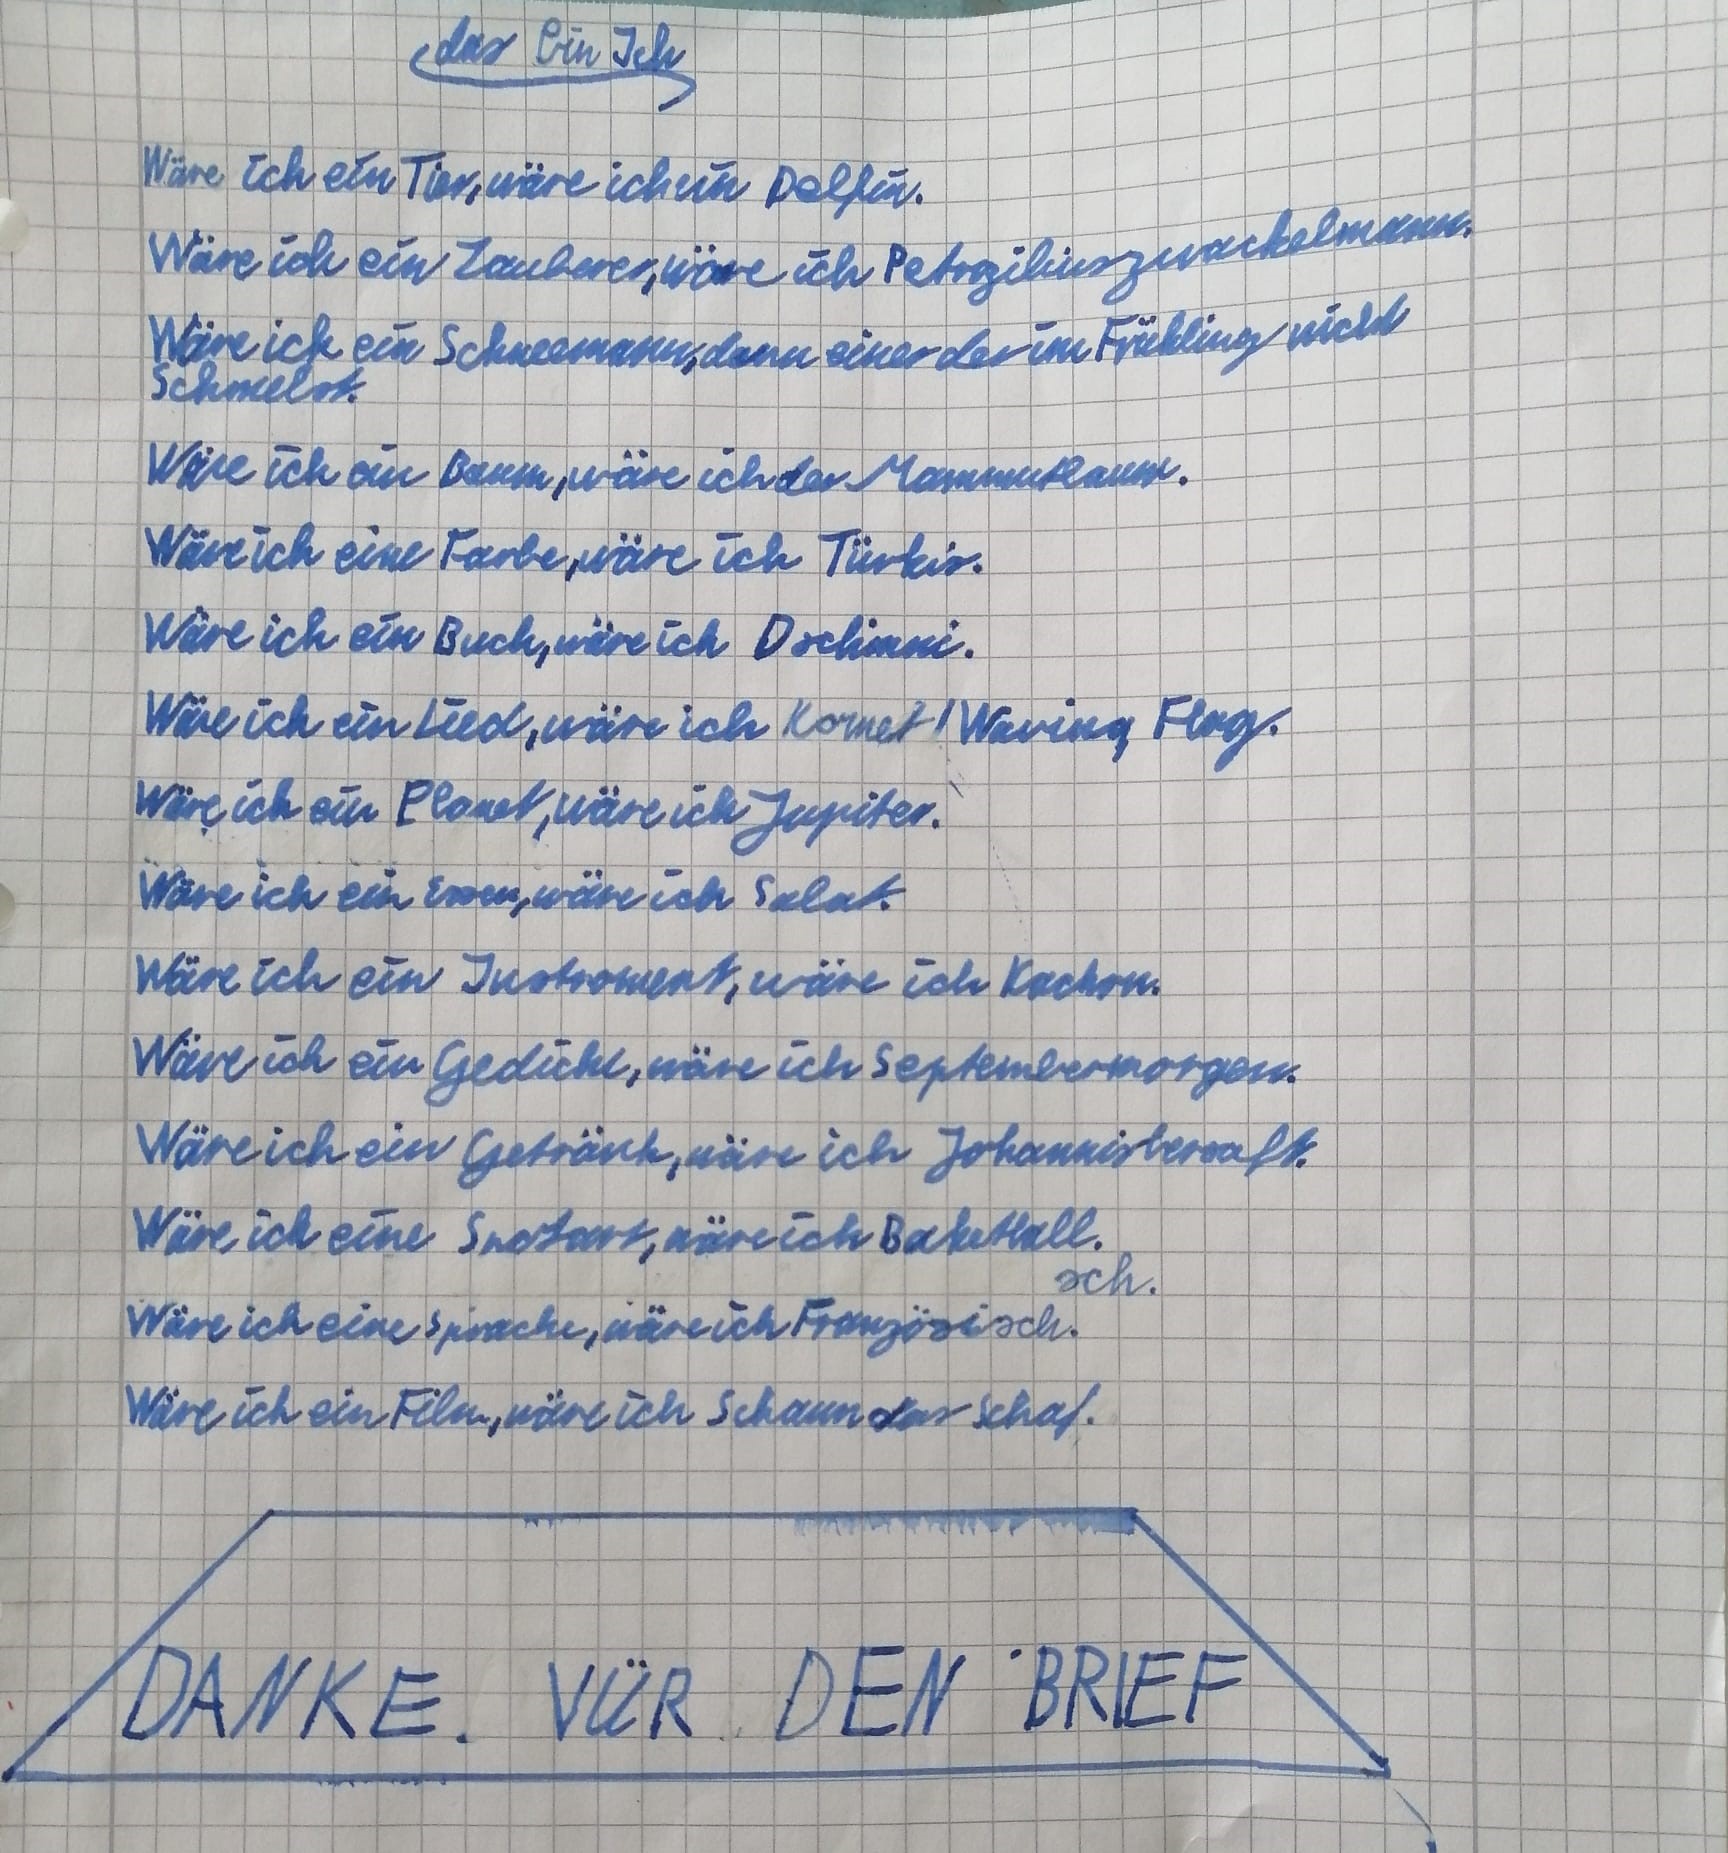 das bin Ich
Wäre ich ein Tier, wäre ich ein Delfin.
Wäre ich ein Zauberer, wäre ich Petrziliuszwackelmann.
Wäre ich ein Schneemann, dann einer der im Frühling nicht
Schmelst.
Wäre ich ein Baum, wäre ich der Mammutbaum.
Wäre ich eine Farbe, wäre ich Türkis.
Wäre ich ein Buch, wäre ich Dschinni.
Wäre ich ein Lied, wäre ich Komet/Waving Flag.
Wäre ich ein Planet, wäre ich Jupiter.
Wäre ich ein Essen, wäre ich Salat.
Wäre ich ein Instroment, wäre ich Kachon.
Wäre ich ein Gedicht, wäre ich Septembermorgen.
Wäre ich ein Getränk, wäre ich Johannisbersaft.
Wäre ich eine Spotart, wäre ich Baketball.
sch.
Wäre ich eine Sprache, wäre ich Französisch.
Wäre ich ein Film, wäre ich Schaun das Schaf.
DANKE. VÜR DEN BRIEF